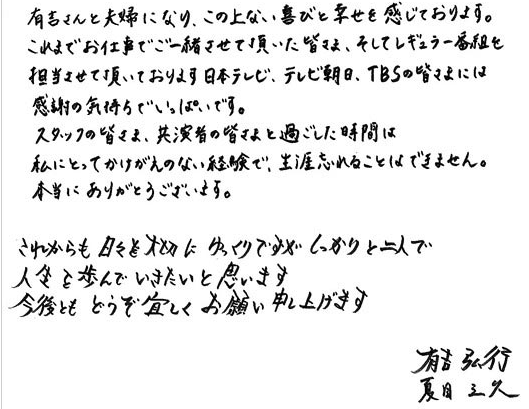 有吉さんと夫婦になり、この上ない喜びと幸せを感じております。
これまでお仕事でご一緒させて頂いた皆さま、そしてレギュラー番組を
担当させて頂いております日本テレビ、テレビ朝日、TBSの皆さまには
感謝の気持ちでいっぱいです。
スタッフの皆さま、共演者の皆さまと過ごした時間は
私にとってかけがえのない経験で、生涯忘れることはできません。
本当にありがとうございます。
これからも日々を大切にゆっくりですがしっかりと二人で
人生を歩んでいきたいと思います
今後ともどうぞ宜しくお願い申し上げます
有吉弘行
夏目三久